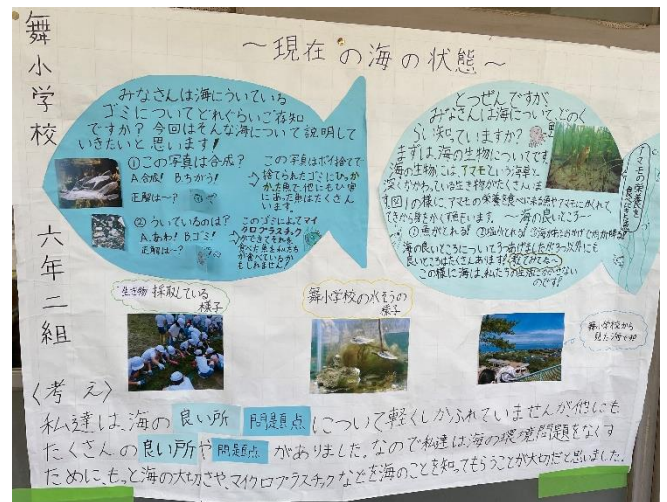 舞小学校 六年二組
～現在の海の状態～
みなさんは海にういている
ゴミについてどれぐらいご存知
ですか?今回はそんな海について説明して
いきたいと思います!
①この写真は合成?
A.合成! B.ちがう!
正解は～?
この写真はポイ捨てで
捨てられたゴミにひっか
かった魚で、他にもひ害に
あった魚はたくさん
います。
②ういているのは?
A.あわ! B.ゴミ!
正解は～?
このゴミによってマイ
クロプラスチック
ができてそれを
食べた魚を私たち
が食べているか
もしれません!
とつぜんですが、
みなさんは海について、どのく
らい知っていますか?
まずは、海の生物についてです
海の生物には、アマモという海草と
深くかかわっている生き物がたくさんいま
す。
～海の良いところ～
①魚がとれる!
海の良いところについて
良いところはたくさんあります!教えてみてね～
この様に海は、私たちの生活に
のです?
アマモの栄養を
食べる
生き物採取している
様子
舞小学校の水そうの
様子
舞小学校から
見た海です!!
〈考え〉
私達は、海の良い所 問題点について軽くしかふれていませんが他にも
たくさんの良い所や問題点がありました。なので私達は、海の環境問題をなくす
ために、もっと海の大切さや、マイクロプラスチックなどを海のことを知ってもらうことが大切だと思いました。